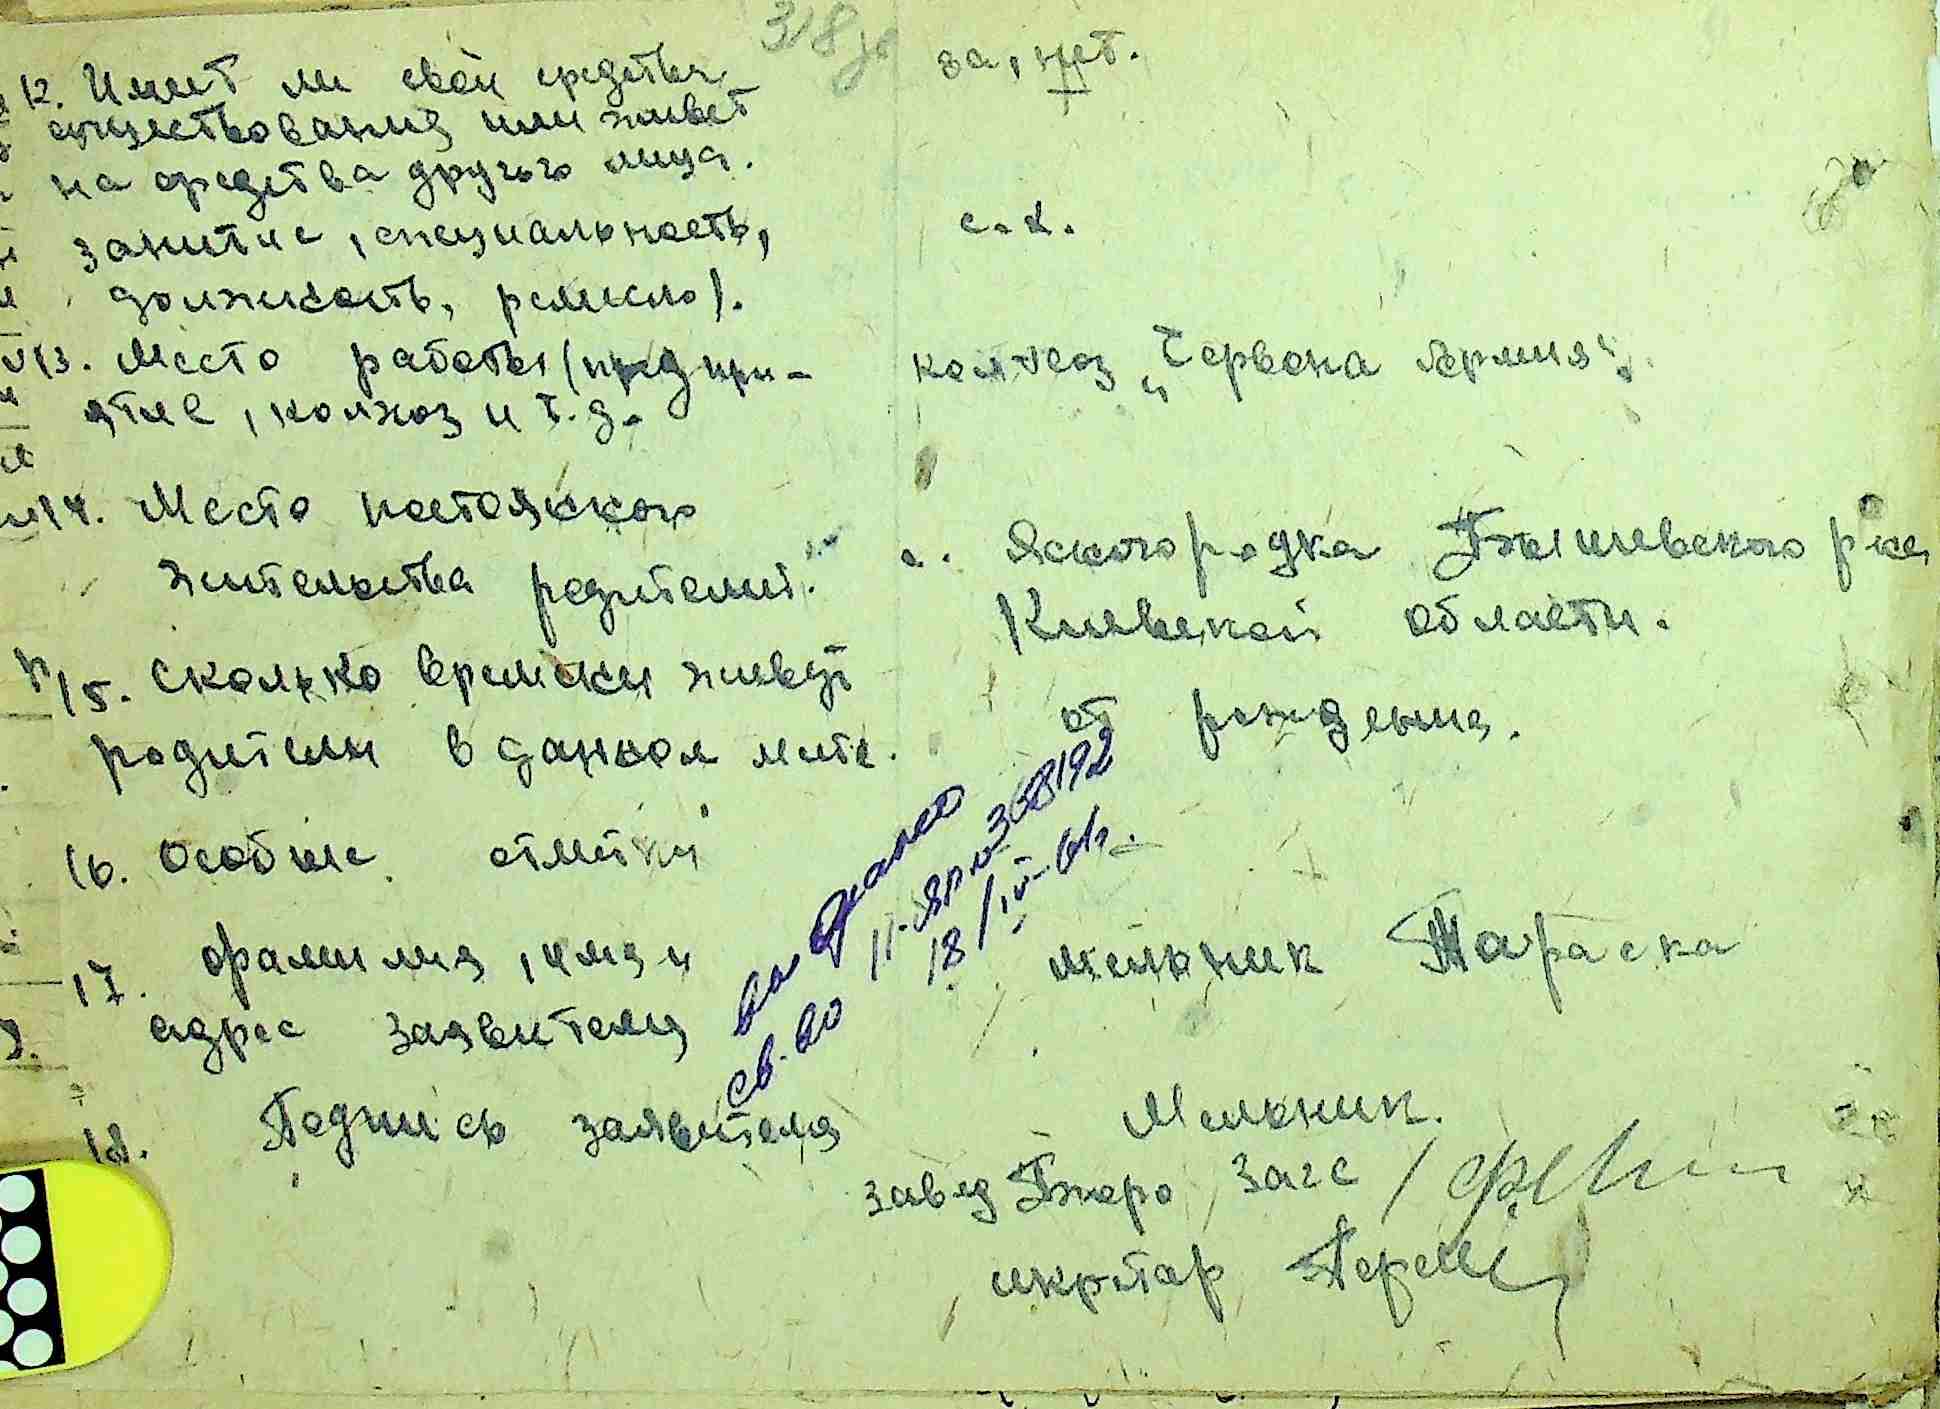 318
12. Имеет ли свои средства
существования или живет
на средства другого лица.
занятие, специальность,
должность, ремесло).
за, нет.
с. х.
13. Место работы (предпри-
ятие, колхоз и т. д.
колхоз „Червона Армия“.
14. Место постоянного
жительства родителей.
с. Ясногородка Бышевского р на
Киевской области.
15. Сколько времени живут
родители в данном месте.
от рождения.
16. Особые отметки
17. фамилия, имя и
адрес заявителя
Мельник Тараска
выдано
св. во 11-ЯР № 368192
18/IV-61г.
18. Подпись заявителя
Мельник.
завед Бюро Загс /
секретар